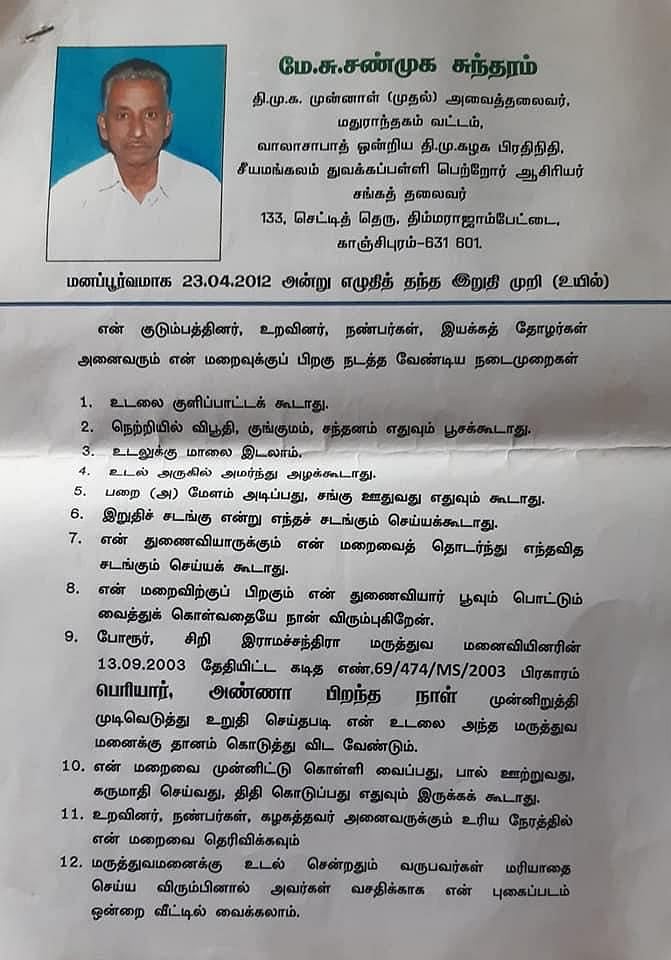 மே.சு.சண்முக சுந்தரம்
தி.மு.க. முன்னாள் (முதல்) அவைத்தலைவர்,
மதுராந்தகம் வட்டம்,
வாலாசாபாத் ஒன்றிய தி.மு.கழக பிரதிநிதி,
சீயமங்கலம் துவக்கப்பள்ளி பெற்றோர் ஆசிரியர்
சங்கத் தலைவர்
133, செட்டித் தெரு, திம்மராஜாம்பேட்டை,
காஞ்சிபுரம்-631 601.
மனப்பூர்வமாக 23.04.2012 அன்று எழுதித் தந்த இறுதி முறி (உயில்)
என் குடும்பத்தினர், உறவினர், நண்பர்கள், இயக்கத் தோழர்கள்
அனைவரும் என் மறைவுக்குப் பிறகு நடத்த வேண்டிய நடைமுறைகள்
1. உடலை குளிப்பாட்டக் கூடாது.
2. நெற்றியில் விபூதி, குங்குமம், சந்தனம் எதுவும் பூசக்கூடாது.
3. உடலுக்கு மாலை இடலாம்.
4. உடல் அருகில் அமர்ந்து அழக்கூடாது.
5. பறை (அ) மேளம் அடிப்பது, சங்கு ஊதுவது எதுவும் கூடாது.
6. இறுதிச் சடங்கு என்று எந்தச் சடங்கும் செய்யக்கூடாது.
7. என் துணைவியாருக்கும் என் மறைவைத் தொடர்ந்து எந்தவித
சடங்கும் செய்யக் கூடாது.
8. என் மறைவிற்குப் பிறகும் என் துணைவியார் பூவும் பொட்டும்
வைத்துக் கொள்வதையே நான் விரும்புகிறேன்.
9. போரூர், சிறி இராமச்சந்திரா மருத்துவ மனைவியினரின்
13.09.2003 தேதியிட்ட கடித எண்.69/474/MS/2003 பிரகாரம்
பெரியார், அண்ணா பிறந்த நாள் முன்னிறுத்தி
முடிவெடுத்து உறுதி செய்தபடி என் உடலை அந்த மருத்துவ
மனைக்கு தானம் கொடுத்து விட வேண்டும்.
10. என் மறைவை முன்னிட்டு கொள்ளி வைப்பது, பால் ஊற்றுவது,
கருமாதி செய்வது, திதி கொடுப்பது எதுவும் இருக்கக் கூடாது.
11. உறவினர், நண்பர்கள், கழகத்தவர் அனைவருக்கும் உரிய நேரத்தில்
என் மறைவை தெரிவிக்கவும்
12. மருத்துவமனைக்கு உடல் சென்றதும் வருபவர்கள் மரியாதை
செய்ய விரும்பினால் அவர்கள் வசதிக்காக என் புகைப்படம்
ஒன்றை வீட்டில் வைக்கலாம்.